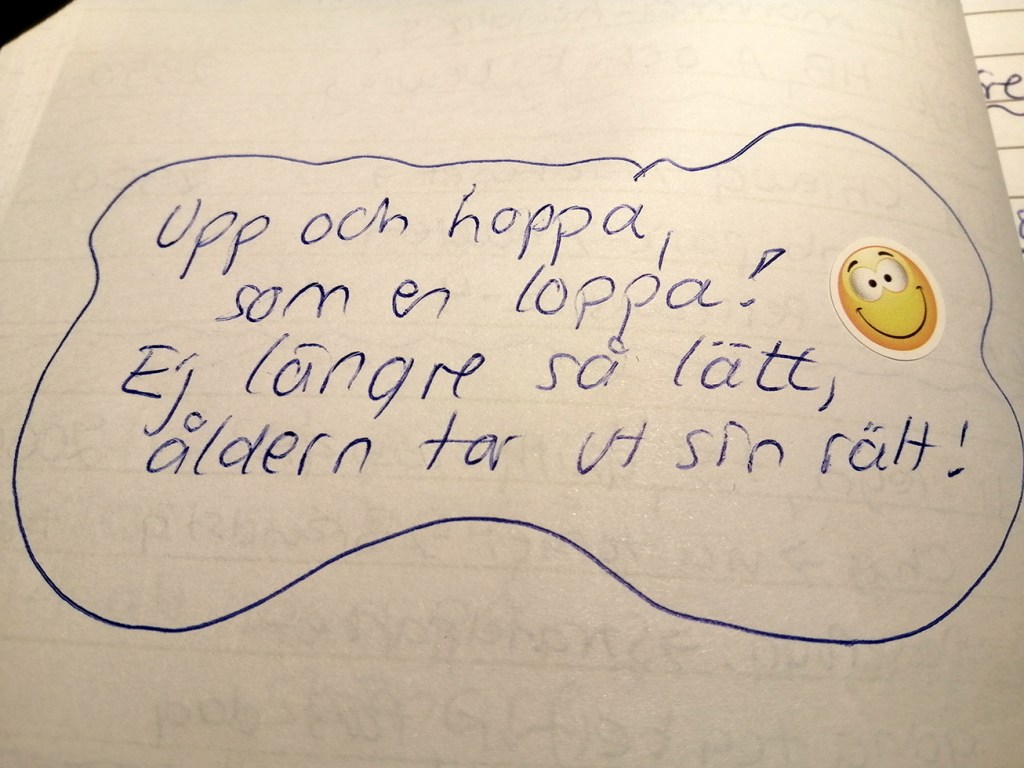 Upp och hoppa,
som en loppa!
Ej längre så lätt,
åldern tar ut sin rätt!